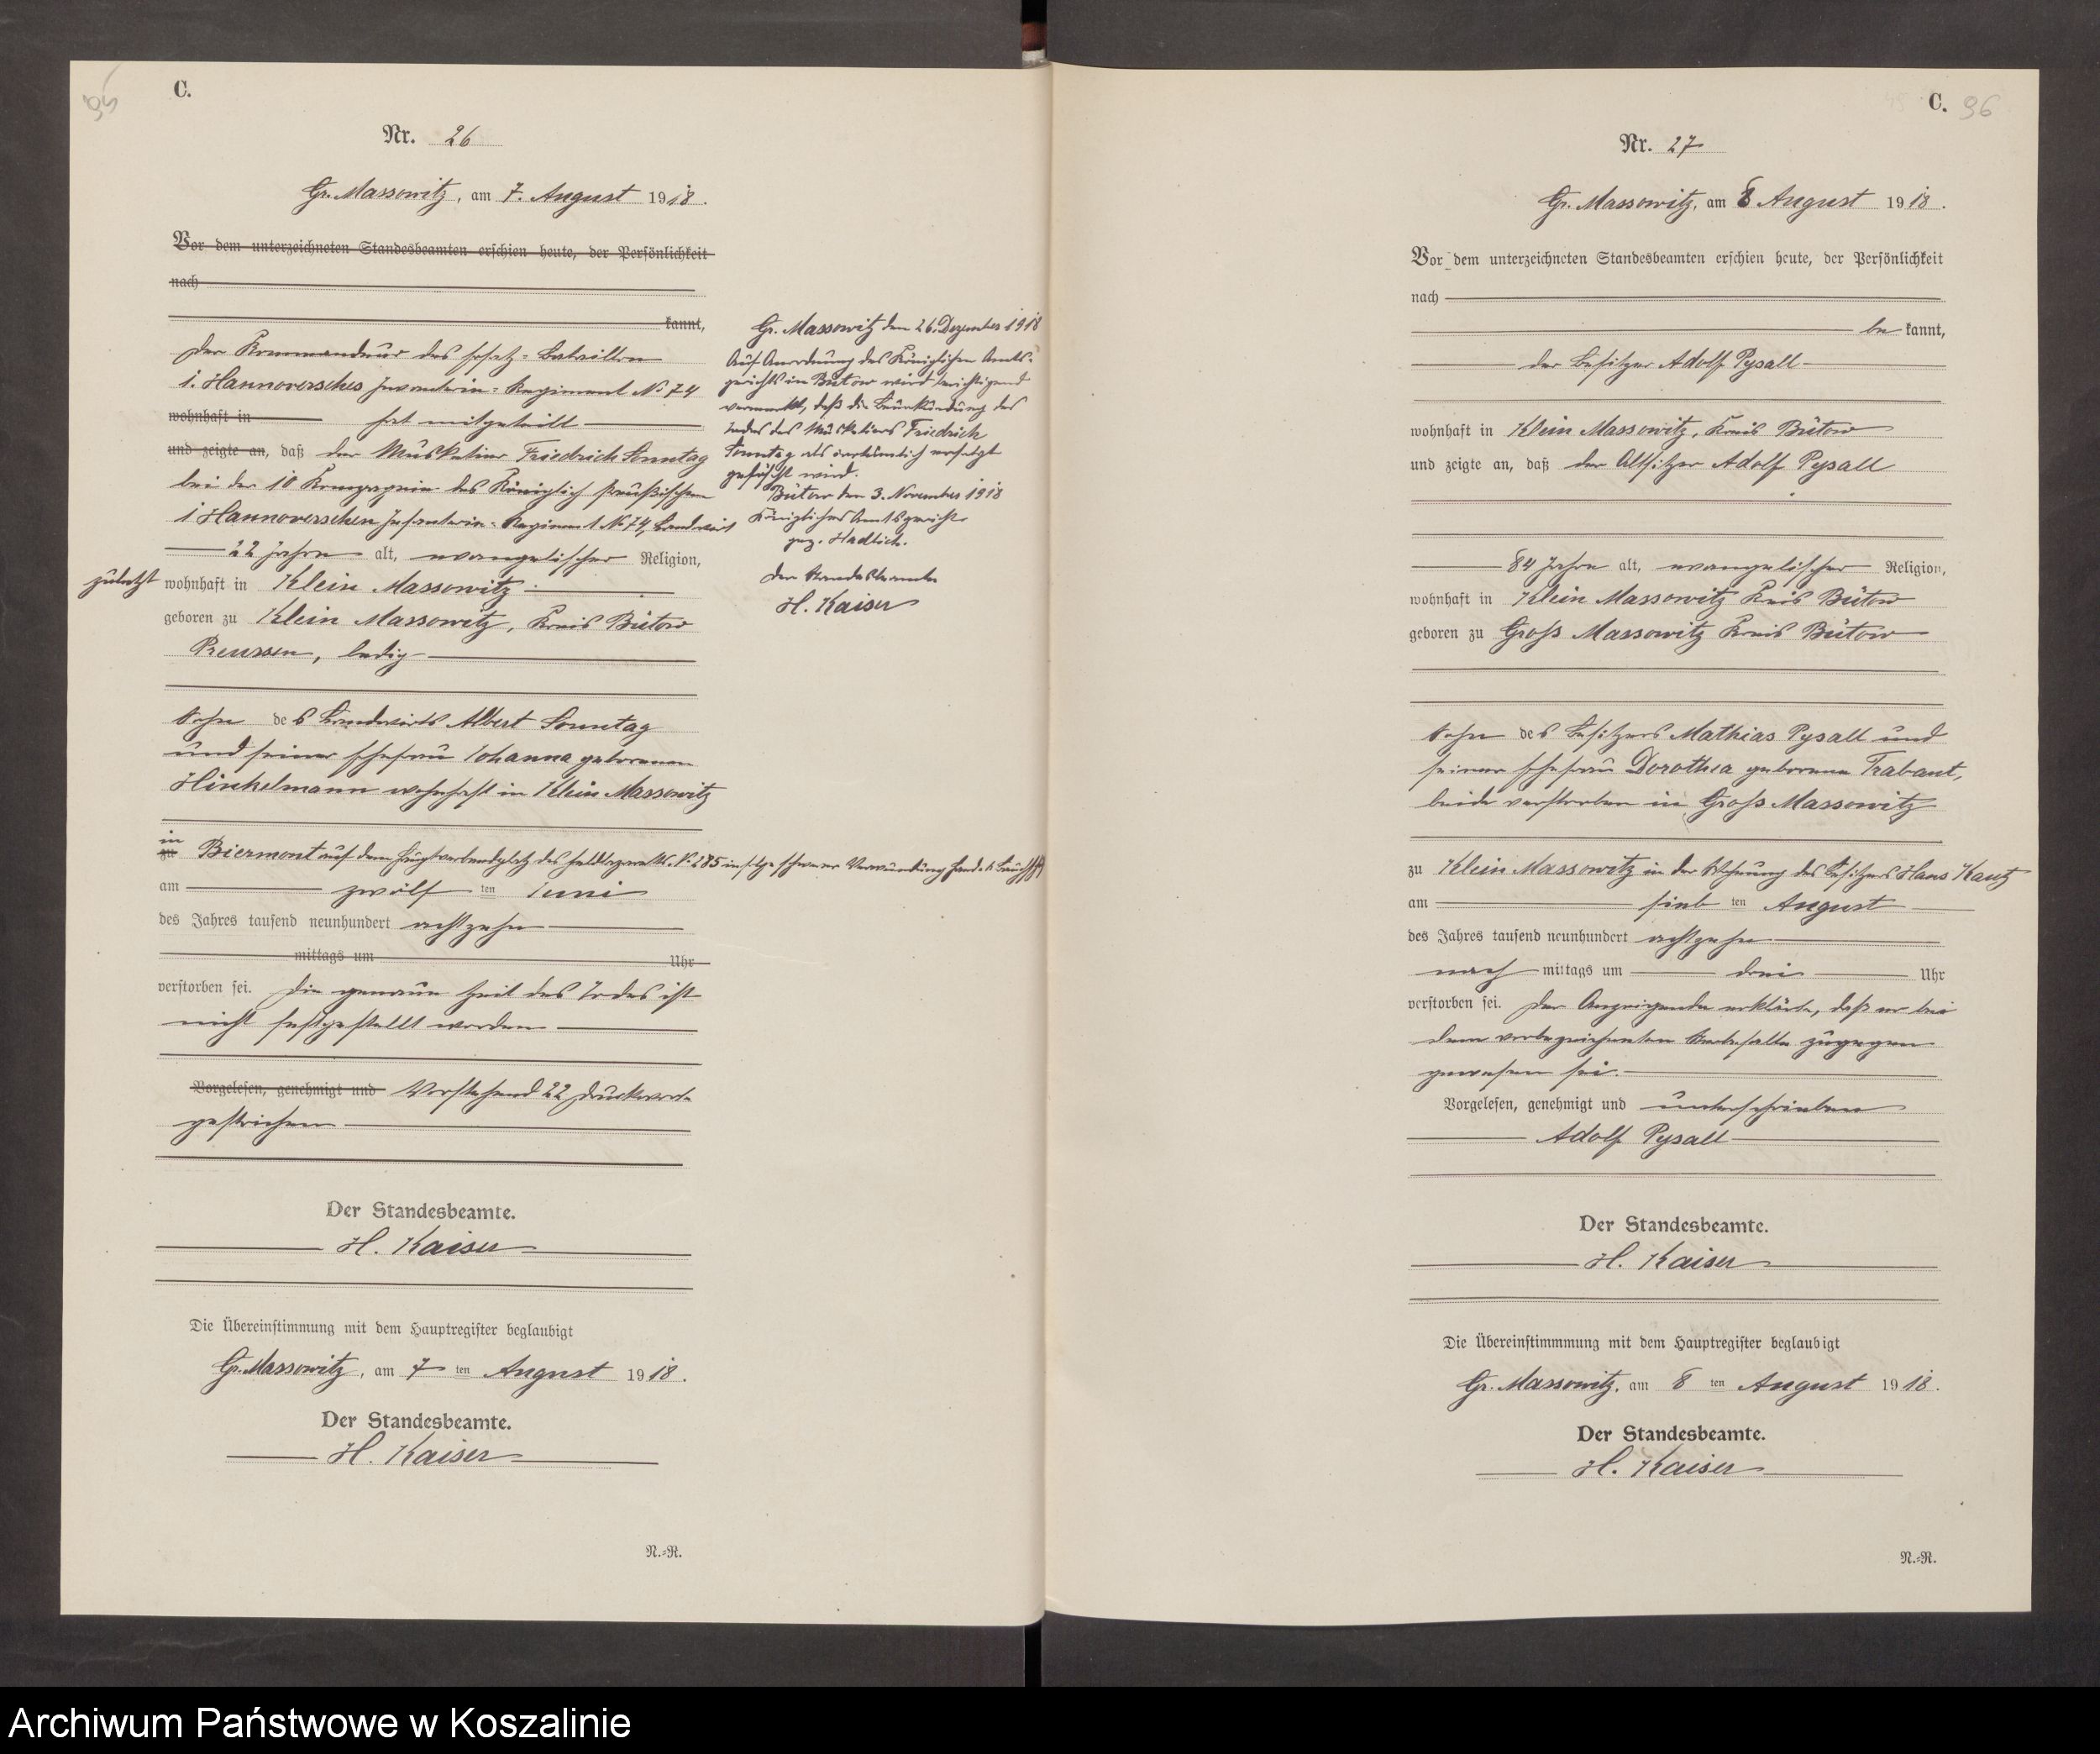 95
C.
Nr. 26
Gr. Massowitz, am 7. August 1918.
Vor dem unterzeichneten Standesbeamten erschien heute, der Persönlichkeit
nach
kannt,
Der Kommandeur des Ersatz-Bataillon
1. Hannoversches Infanterie-Regiment No 74
wohnhaft in hat mitgeteilt
und zeigte an, daß der Musketier Friedrich Sonntag
bei der 10 Kompagnie des Königlich Preußischen
1 Hannoverschen Infanterie-Regiment No 74, Landwirt
22 Jahre alt, evangelischer Religion,
zuletzt wohnhaft in Klein Massowitz
geboren zu Klein Massowitz, Kreis Bütow
Preussen, ledig
Sohn des Landwirts Albert Sonntag
und seiner Ehefrau Johanna geborenen
Hinkelmann wohnhaft in Klein Massowitz
in
zu Biermont auf dem Hauptverbandplatz des Feldlazaretts N. 285 infolge schwerer Verwundung
am zwölften Juni
des Jahres tausend neunhundert achtzehn
mittags um Uhr
verstorben sei. Die genaue Zeit des Todes ist
nicht festgestellt worden
Vorgelesen, genehmigt und Vorstehend 22 Druckworte
gestrichen
Der Standesbeamte.
H. Kaiser
Die Übereinstimmung mit dem Hauptregister beglaubigt
Gr. Massowitz, am 7ten August 1918.
Der Standesbeamte.
H. Kaiser
N.-R.
Gr. Massowitz den 26. Dezember 1918
Auf Anordnung des Königlichen Amts-
gerichts in Bütow wird berichtigend
vermerkt, daß die Beurkundung des
Todes des Musketiers Friedrich
Sonntag als irrtümlich erfolgt
gelöscht wird.
Bütow den 3. November 1918
Königliches Amtsgericht
gez. Hadlich.
Der Standesbeamte
H. Kaiser
C. 96
Nr. 27
Gr. Massowitz, am 8 August 1918.
Vor dem unterzeichneten Standesbeamten erschien heute, der Persönlichkeit
nach
be kannt,
der Besitzer Adolf Pysall
wohnhaft in Klein Massowitz, Kreis Bütow
und zeigte an, daß der Altsitzer Adolf Pysall
84 Jahre alt, evangelischer Religion,
wohnhaft in Klein Massowitz Kreis Bütow
geboren zu Gross Massowitz Kreis Bütow
Sohn des Besitzers Mathias Pysall und
seiner Ehefrau Dorothea geborene Trabant,
beide verstorben in Gross Massowitz
zu Klein Massowitz in der Wohnung des Besitzers Hans Kautz
am siebten August
des Jahres tausend neunhundert achtzehn
nach mittags um drei Uhr
verstorben sei. Der Anzeigende erklärte, daß er bei
dem vorbezeichneten Sterbefalle zugegen
gewesen sei.
Vorgelesen, genehmigt und unterschrieben
Adolf Pysall
Der Standesbeamte.
H. Kaiser
Die Übereinstimmmung mit dem Hauptregister beglaubigt
Gr. Massowitz, am 8ten August 1918.
Der Standesbeamte.
H. Kaiser
N.-R.
Archiwum Państwowe w Koszalinie